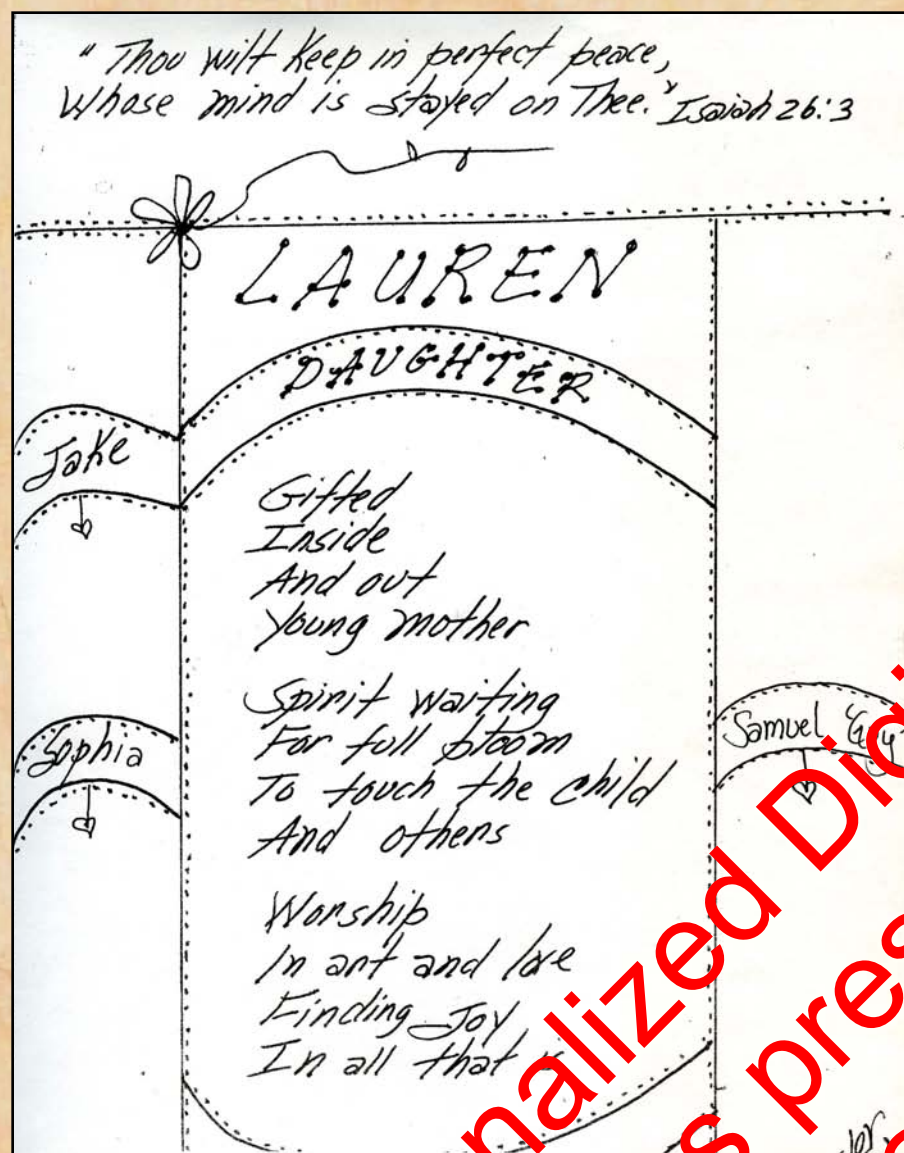 "Thou wilt keep in perfect peace,
Whose mind is stayed on Thee." Isaiah 26:3
LAUREN
DAUGHTER
Jake
Gifted
Inside
And out
Young mother
Spirit waiting
For full bloom
To touch the child
And others
Sophia
Samuel "Guy"
Worship
In art and love
Finding Joy
In all that is